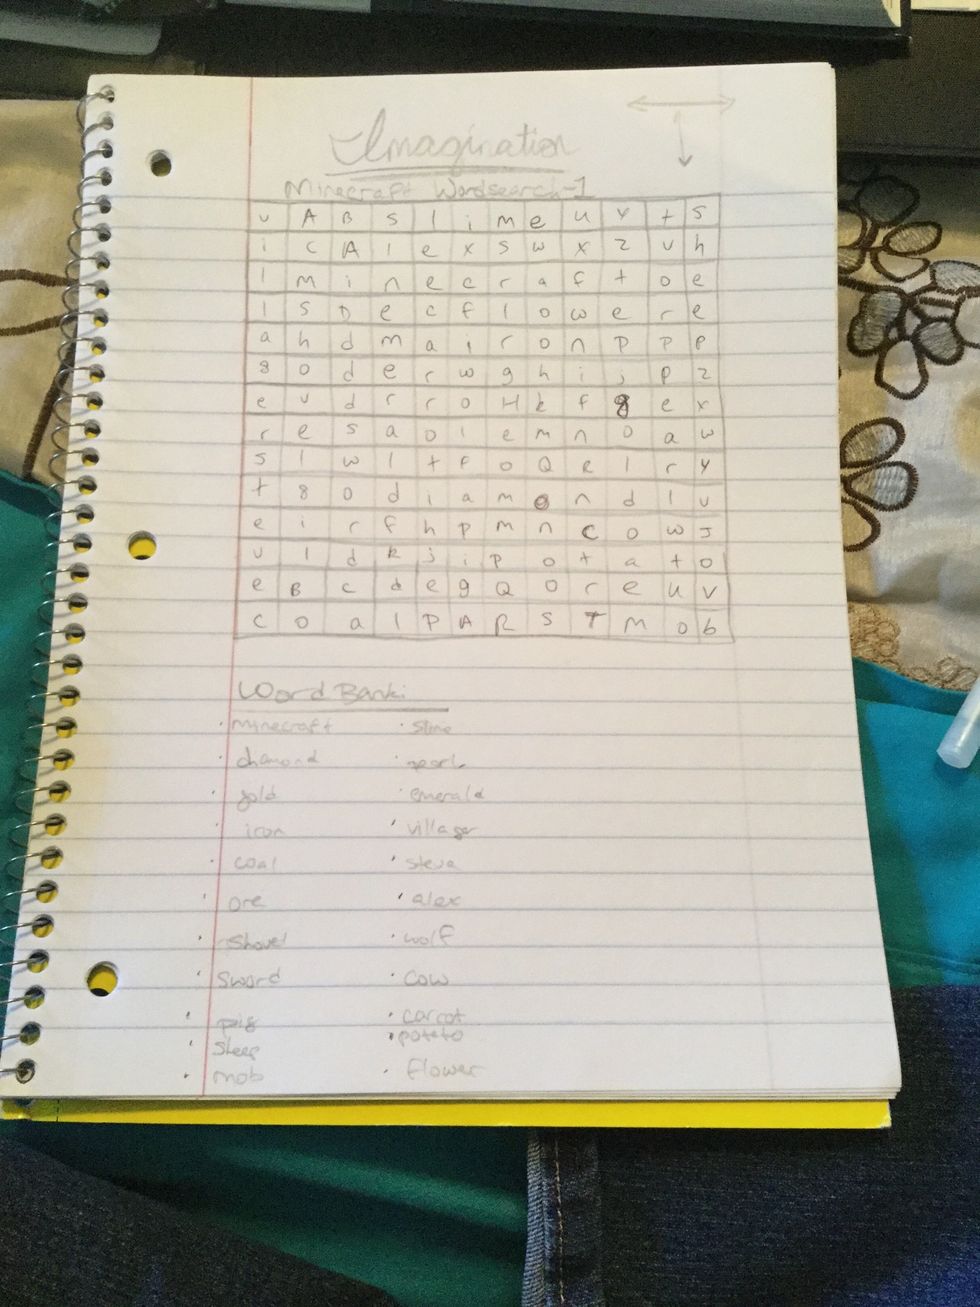 Imagination
Minecraft Wordsearch-1
v A B s l i m e u y t s
i c A l e x s w x z u h
l m i n e c r a f t o e
l s D e c f l o w e r e
a h d m a i r o n p p p
g o d e r w g h i j p z
e v d r r o H k f g e x
r e s a o l e m n o a w
s l w l t f o Q R l r y
t g o d i a m o n d l u
e i r f h p m n c o w J
v l d k j i p o t a t o
e B c d e g Q o r e u v
c o a l P A R S T M o b
Word Bank:
· minecraft · slime
· diamond · pearl
· gold · emerald
· iron · villager
· coal · steve
· ore · alex
· shovel · wolf
· sword · cow
· pig · carrot
· sheep · potato
· mob · flower